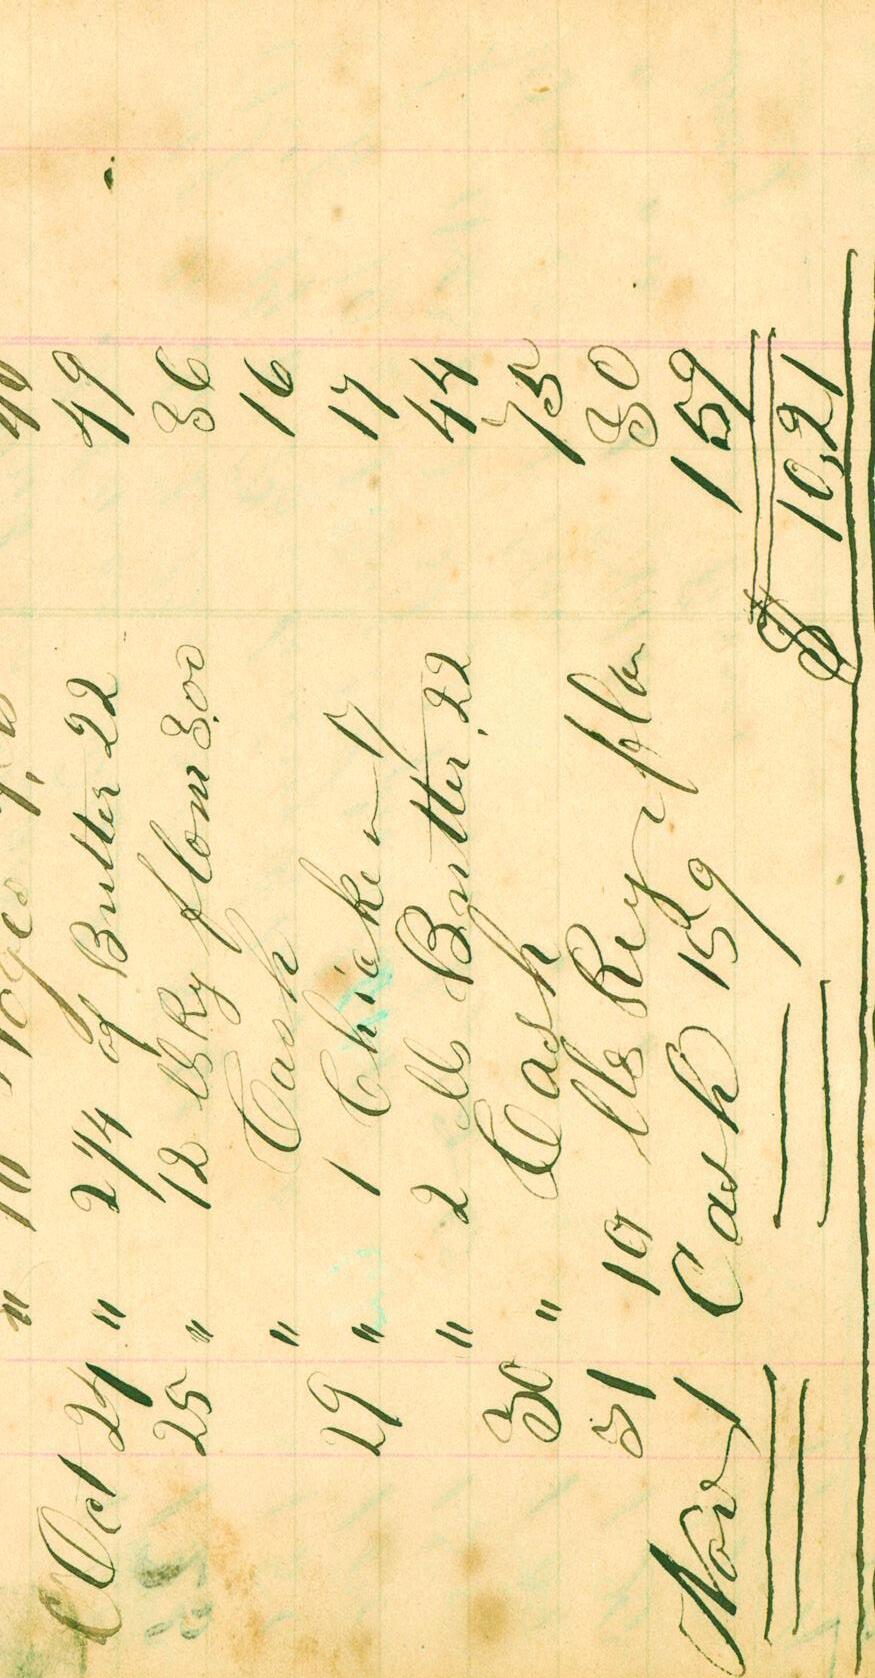 " 10
Oct 24 " 2 1/4 of Butter 22 49
25 " 12 lbs Ry flour 3,00 36
" Cash 16
29 " 1 Chicken 17 17
" 2 lbs Butter, 22 44
30 " Cash 75
31 10 lbs Rey flou 30
Nov 1 Cash 159 159
$ 10,21